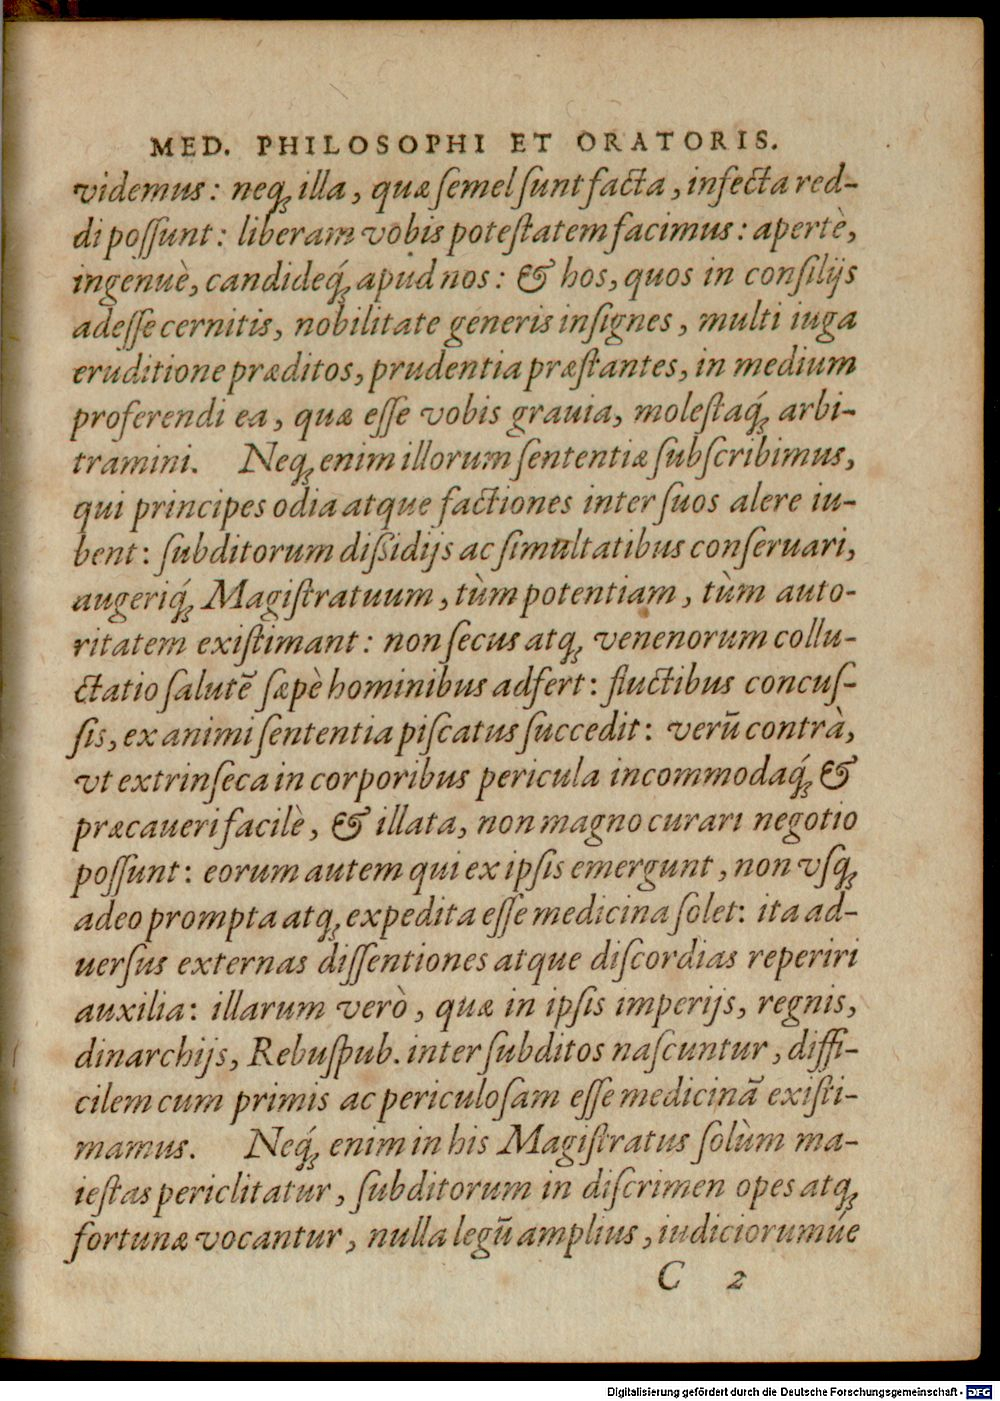 MED. PHILOSOPHI ET ORATORIS.
videmus: neq; illa, quæ semel sunt facta, infecta red-
di possunt: liberam vobis potestatem facimus: apertè,
ingenuè, candideq́; apud nos: & hos, quos in consilijs
adesse cernitis, nobilitate generis insignes, multi iuga
eruditione præditos, prudentia præstantes, in medium
proferendi ea, quæ esse vobis grauia, molestaq́; arbi-
tramini. Neq; enim illorum sententiæ subscribimus,
qui principes odia atque factiones inter suos alere iu-
bent: subditorum dißidijs ac simultatibus conseruari,
augeriq́; Magistratuum, tùm potentiam, tùm auto-
ritatem existimant: non secus atq; venenorum collu-
ctatio salutẽ sæpè hominibus adfert: fluctibus concus-
sis, ex animi sententia piscatus succedit: verũ contrà,
vt extrinseca in corporibus pericula incommodaq́; &
præcaueri facilè, & illata, non magno curari negotio
possunt: eorum autem qui ex ipsis emergunt, non vsq;
adeo prompta atq; expedita esse medicina solet: ita ad-
uersus externas dissentiones atque discordias reperiri
auxilia: illarum verò, quæ in ipsis imperijs, regnis,
dinarchijs, Rebuspub. inter subditos nascuntur, diffi-
cilem cum primis ac periculosam esse medicinã existi-
mamus. Neq́; enim in his Magistratus solùm ma-
iestas periclitatur, subditorum in discrimen opes atq;
fortunæ vocantur, nulla legũ amplius, iudiciorumúe
C 2
Digitalisierung gefördert durch die Deutsche Forschungsgemeinschaft - DFG